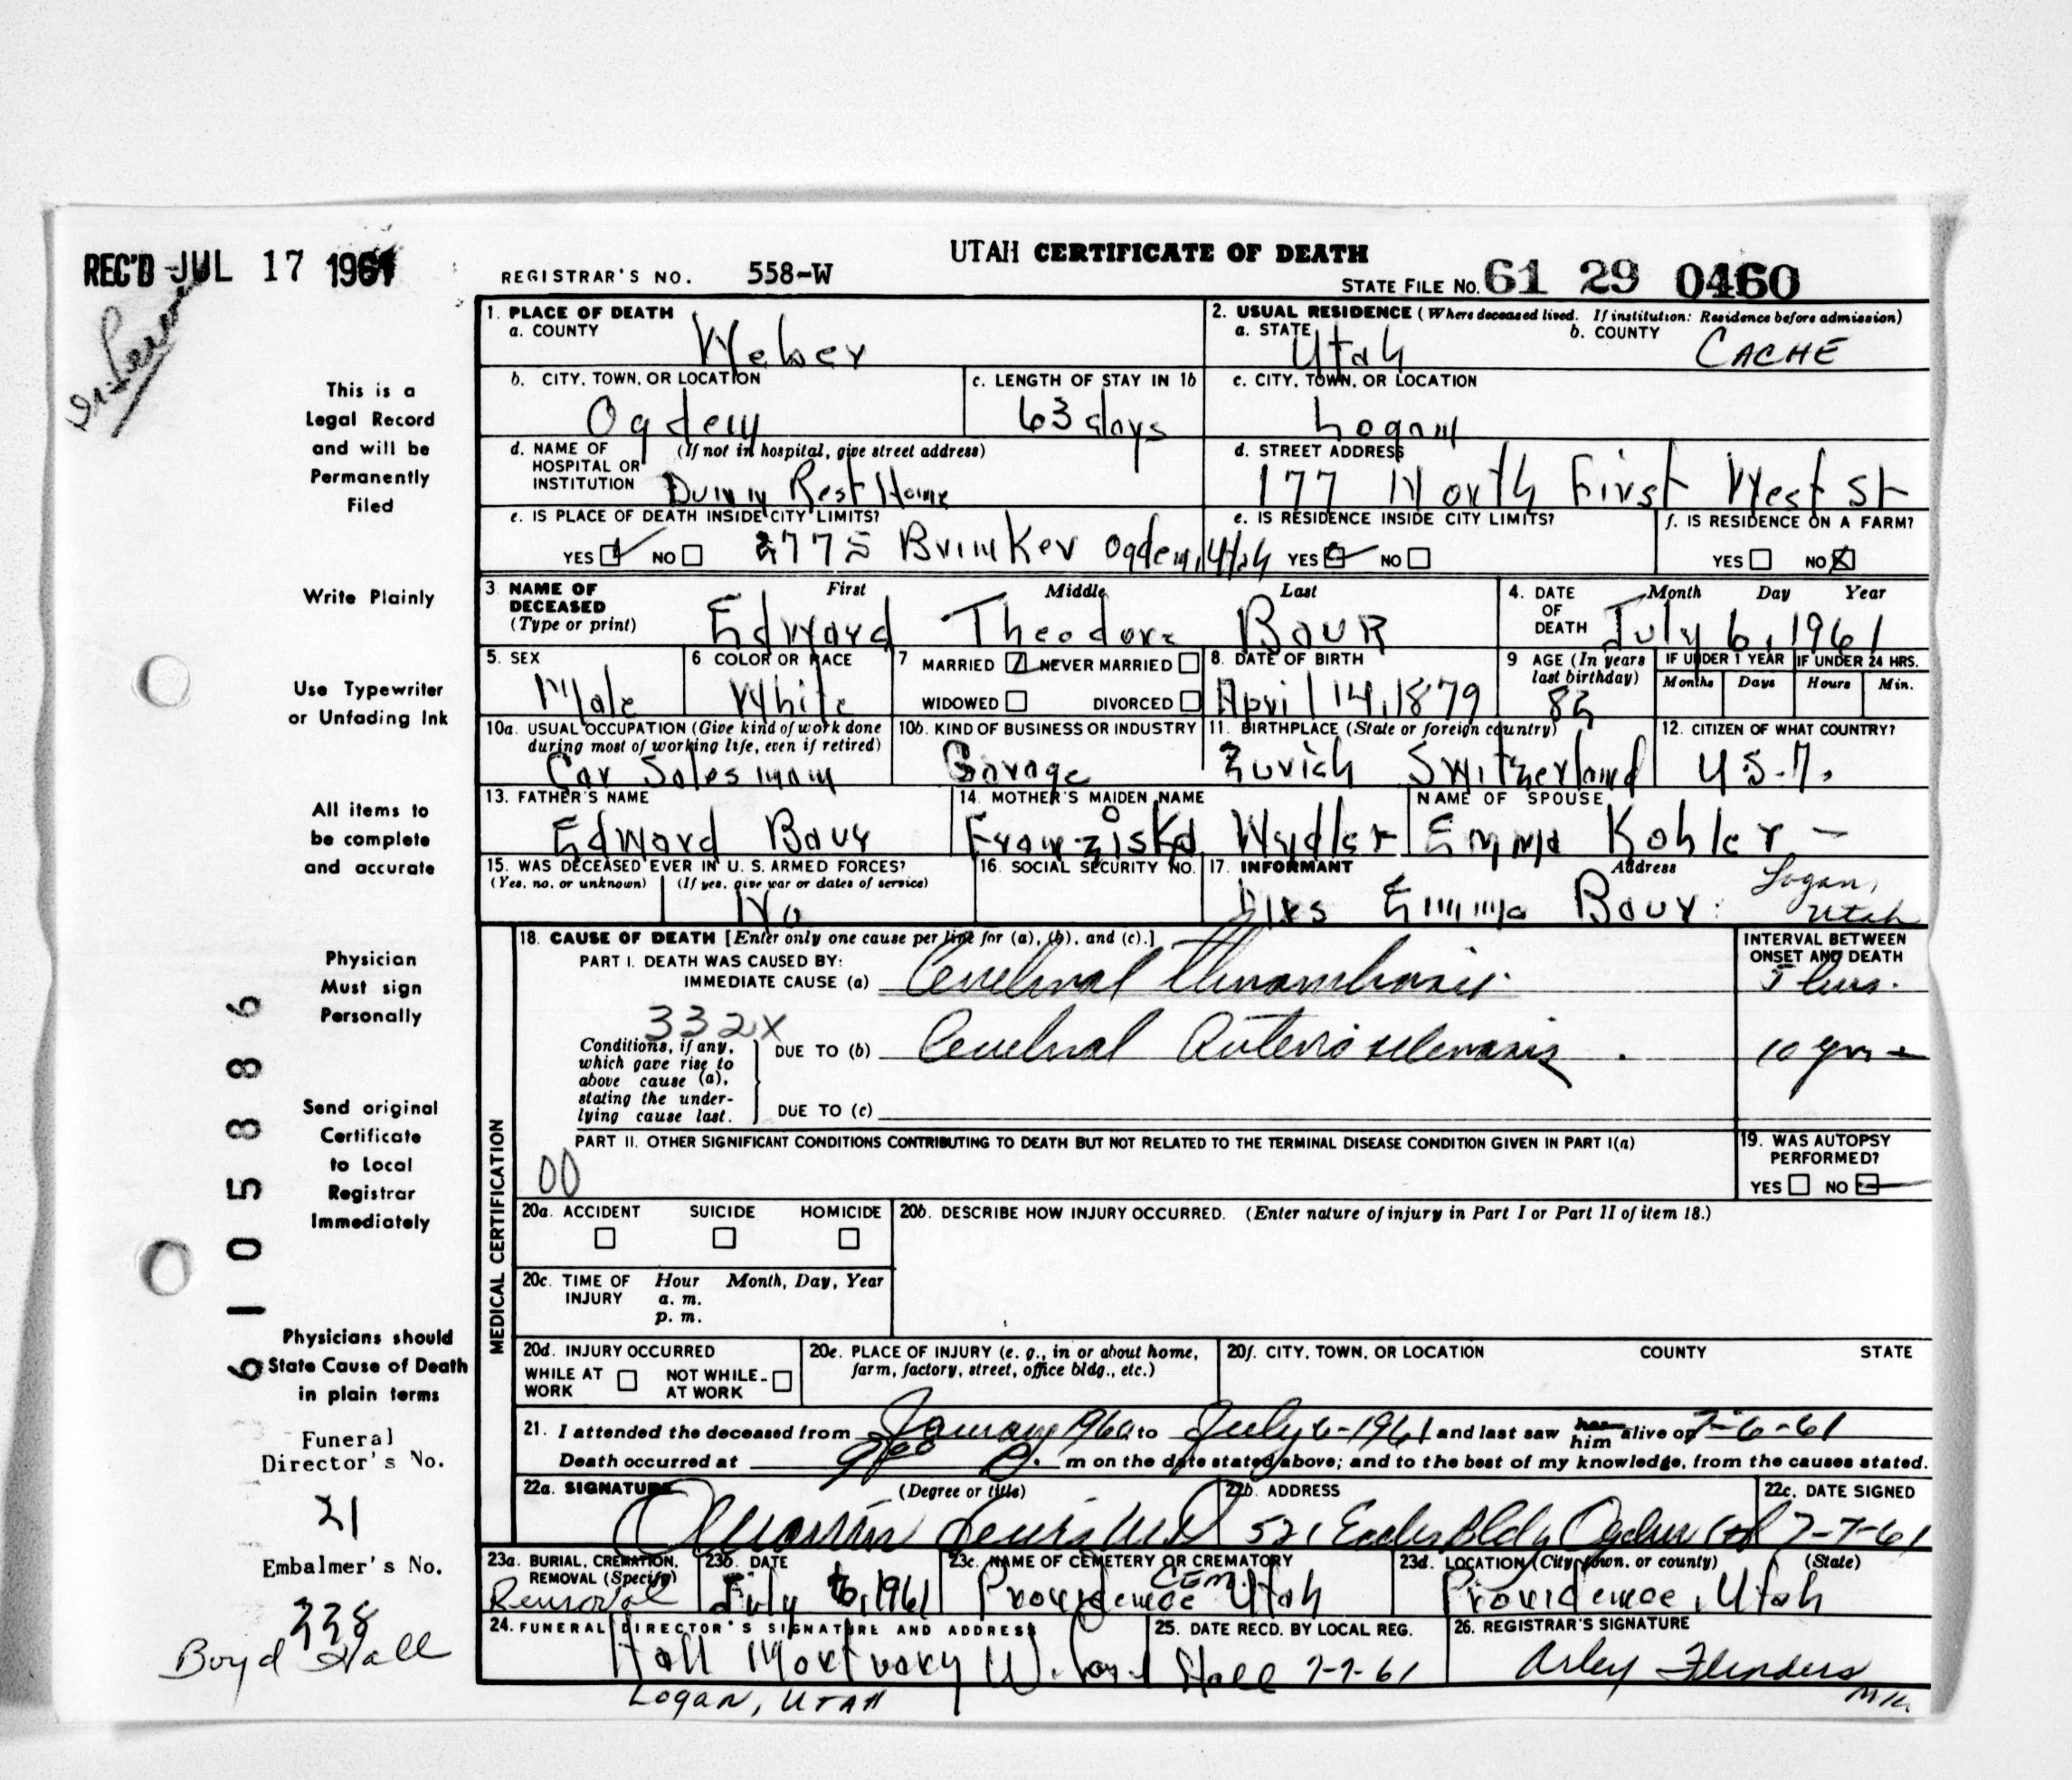 REC'D JUL 17 1961
UTAH CERTIFICATE OF DEATH
REGISTRAR'S NO. 558-W
STATE FILE No. 61 29 0460
This is a
Legal Record
and will be
Permanently
Filed
Write Plainly
Use Typewriter
or Unfading Ink
All items to
be complete
and accurate
Physician
Must sign
Personally
Send original
Certificate
to Local
Registrar
Immediately
Physicians should
State Cause of Death
in plain terms
Funeral
Director's No.
21
Embalmer's No.
338
Boyd Hall
6105886
1. PLACE OF DEATH
a. COUNTY Weber
2. USUAL RESIDENCE (Where deceased lived. If institution: Residence before admission)
a. STATE Utah b. COUNTY CACHE
b. CITY, TOWN, OR LOCATION Ogden
c. LENGTH OF STAY IN 1b 63 days
c. CITY, TOWN, OR LOCATION Logan
d. NAME OF (If not in hospital, give street address)
HOSPITAL OR
INSTITUTION Dunn Rest Home
d. STREET ADDRESS
177 North First West St
e. IS PLACE OF DEATH INSIDE CITY LIMITS?
YES NO 2775 Brinker Ogden, Utah
e. IS RESIDENCE INSIDE CITY LIMITS?
YES NO
f. IS RESIDENCE ON A FARM?
YES NO
3. NAME OF DECEASED (Type or print) First Middle Last
Edward Theodore Baur
4. DATE OF DEATH Month Day Year
July 6, 1961
5. SEX Male
6 COLOR OR RACE White
7 MARRIED NEVER MARRIED
WIDOWED DIVORCED
8. DATE OF BIRTH April 14, 1879
9 AGE (In years last birthday) 82
IF UNDER 1 YEAR Months Days
IF UNDER 24 HRS. Hours Min.
10a. USUAL OCCUPATION (Give kind of work done
during most of working life, even if retired)
Car Salesman
10b. KIND OF BUSINESS OR INDUSTRY Garage
11. BIRTHPLACE (State or foreign country) Zurich Switzerland
12. CITIZEN OF WHAT COUNTRY? U.S.A.
13. FATHER'S NAME Edward Baur
14. MOTHER'S MAIDEN NAME Franziska Wydler
NAME OF SPOUSE Emma Kohler
15. WAS DECEASED EVER IN U. S. ARMED FORCES?
(Yes, no, or unknown) (If yes, give war or dates of service)
No
16. SOCIAL SECURITY NO.
17. INFORMANT Address
Mrs Emma Baur Logan, Utah
MEDICAL CERTIFICATION
18. CAUSE OF DEATH [Enter only one cause per line for (a), (b), and (c).]
INTERVAL BETWEEN
ONSET AND DEATH
PART I. DEATH WAS CAUSED BY:
IMMEDIATE CAUSE (a) Cerebral thrombosis. 5 hrs.
332X
Conditions, if any,
which gave rise to
above cause (a),
stating the under-
lying cause last.
DUE TO (b) Cerebral Arteriosclerosis. 10 yrs
DUE TO (c)
PART II. OTHER SIGNIFICANT CONDITIONS CONTRIBUTING TO DEATH BUT NOT RELATED TO THE TERMINAL DISEASE CONDITION GIVEN IN PART I(a)
00
19. WAS AUTOPSY
PERFORMED?
YES NO
20a. ACCIDENT SUICIDE HOMICIDE
20b. DESCRIBE HOW INJURY OCCURRED. (Enter nature of injury in Part I or Part II of item 18.)
20c. TIME OF INJURY Hour Month, Day, Year
a. m.
p. m.
20d. INJURY OCCURRED
WHILE AT WORK NOT WHILE AT WORK
20e. PLACE OF INJURY (e. g., in or about home,
farm, factory, street, office bldg., etc.)
20f. CITY, TOWN, OR LOCATION COUNTY STATE
21. I attended the deceased from January 1960 to July 6-1961 and last saw her him alive on 7-6-61
Death occurred at 9:00 P. m on the date stated above; and to the best of my knowledge, from the causes stated.
22a. SIGNATURE (Degree or title)
Lewis M.D
22b. ADDRESS
521 Eccles Bldg Ogden
22c. DATE SIGNED
7-7-61
23a. BURIAL, CREMATION,
REMOVAL (Specify)
Removal
23b. DATE
July 6, 1961
23c. NAME OF CEMETERY OR CREMATORY
Providence CEM. Utah
23d. LOCATION (City, town, or county) (State)
Providence, Utah
24. FUNERAL DIRECTOR'S SIGNATURE AND ADDRESS
Hall Mortuary Hall
LOGAN, UTAH
25. DATE RECD. BY LOCAL REG.
7-7-61
26. REGISTRAR'S SIGNATURE
Arley Flinders